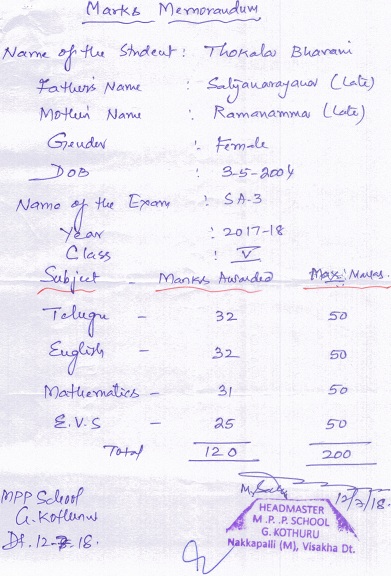 Marks Memorandum
Name of the Student : Thokala Bhavani
Father's Name : Satyanarayana (Late)
Mother's Name : Ramanamma (Late)
Gender : Female
DOB : 3-5-2004
Name of the Exam : SA-3
Year : 2017-18
Class : V
Subject - Marks Awarded Max: Marks.
Telugu - 32 50
English - 32 50
Mathematics - 31 50
E.V.S - 25 50
Total 120 200
12/7/18.
MPP School
G. Kothuru
Dt. 12-7-18.
HEADMASTER
M.P.P. SCHOOL
G. KOTHURU
Nakkapalli (M), Visakha Dt.